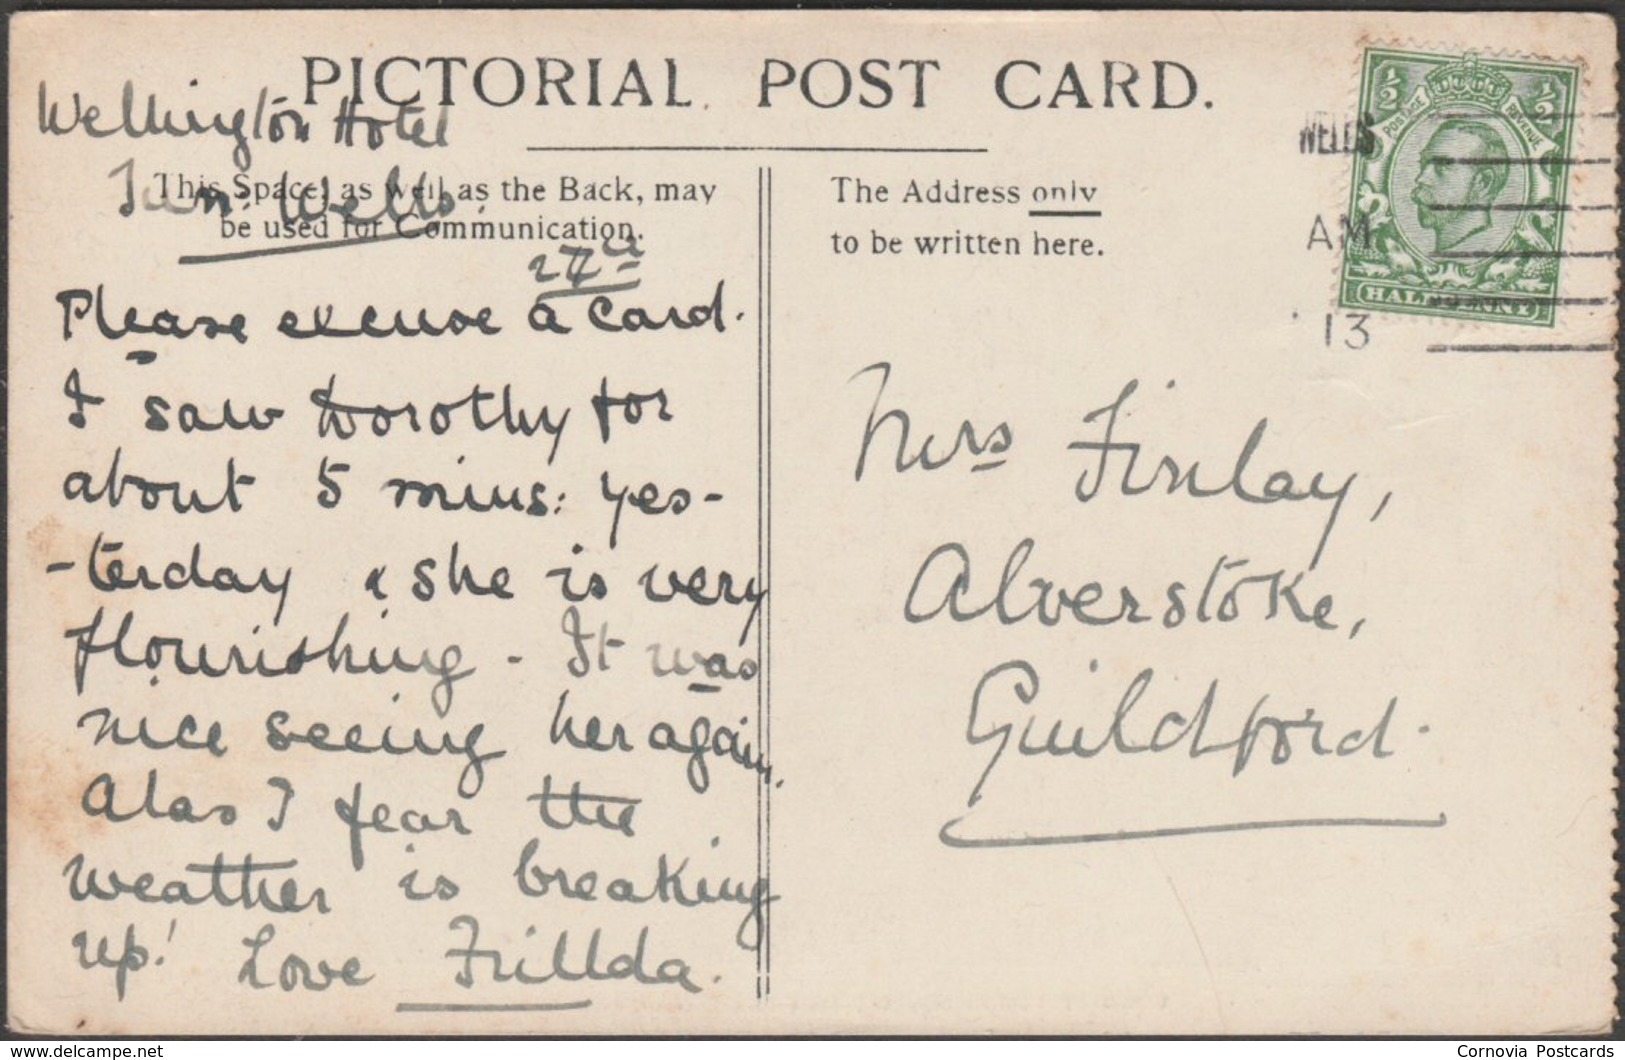 PICTORIAL POST CARD.
Wellington Hotel
Tun: Wells.
This Space, as well as the Back, may
be used for Communication.
27th
Please excuse a card.
I saw Dorothy for
about 5 mins: yes-
-terday & she is very
flourishing - It was
nice seeing her again.
Alas I fear the
weather is breaking
up! Love Frillda.
The Address only
to be written here.
WELLS
AM
13
½ ½
POSTAGE REVENUE
HALFPENNY
Mrs Finlay,
Alverstoke,
Guildford.
Cornovia Postcards
www.delcampe.net